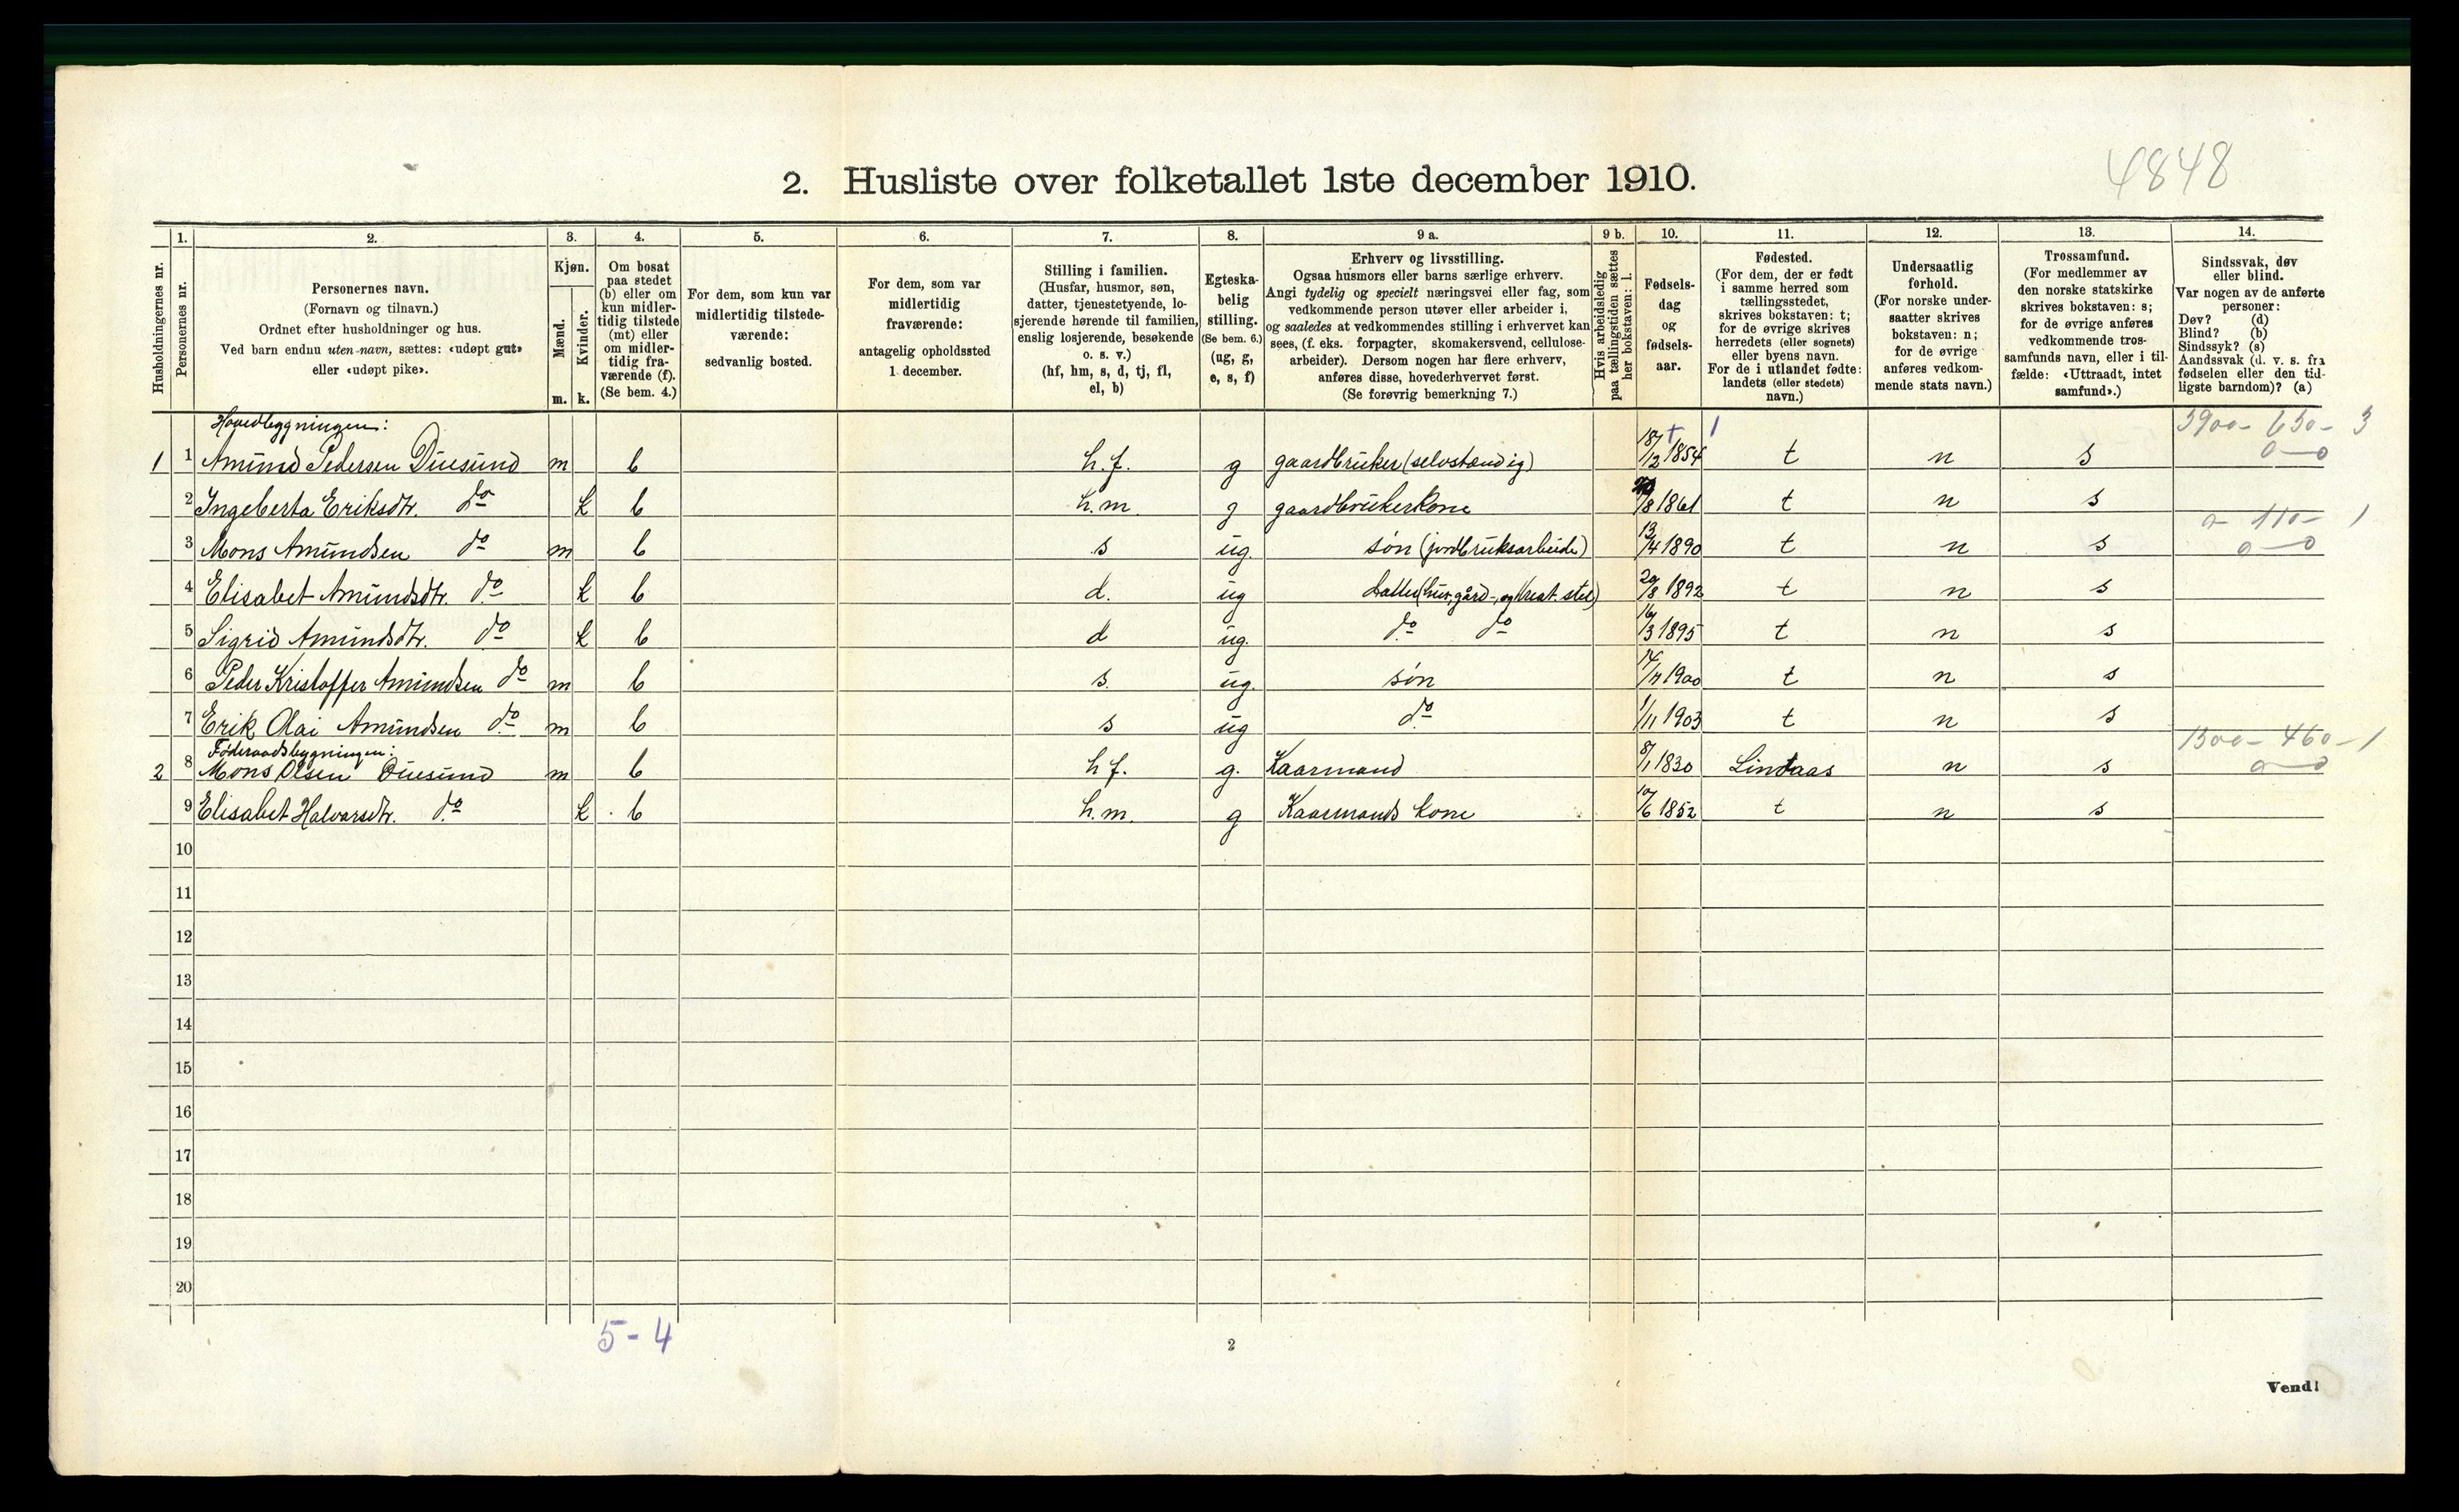 4848
2. Husliste over folketallet 1ste december 1910.
Husholdningernes nr.
1.
Personernes nr.
2.
Personernes navn.
(Fornavn og tilnavn.)
Ordnet efter husholdninger og hus.
Ved barn endnu uten navn, sættes: «udøpt gut»
eller «udøpt pike».
3.
Kjøn.
Mænd.
Kvinder.
m. k.
4.
Om bosat
paa stedet
(b) eller om
kun midler-
tidig tilstede
(mt) eller
om midler-
tidig fra-
værende (f).
(Se bem. 4.)
5.
For dem, som kun var
midlertidig tilstede-
værende:
sedvanlig bosted.
6.
For dem, som var
midlertidig
fraværende:
antagelig opholdssted
1 december.
7.
Stilling i familien.
(Husfar, husmor, søn,
datter, tjenestetyende, lo-
sjerende hørende til familien,
enslig losjerende, besøkende
o. s. v.)
(hf, hm, s, d, tj, fl,
el, b)
8.
Egteska-
belig
stilling.
(Se bem. 6.)
(ug, g,
e, s, f)
9 a.
Erhverv og livsstilling.
Ogsaa husmors eller barns særlige erhverv.
Angi tydelig og specielt næringsvei eller fag, som
vedkommende person utøver eller arbeider i,
og saaledes at vedkommendes stilling i erhvervet kan
sees, (f. eks. forpagter, skomakersvend, cellulose-
arbeider). Dersom nogen har flere erhverv,
anføres disse, hovederhvervet først.
(Se forøvrig bemerkning 7.)
9 b.
Hvis arbeidsledig
paa tællingstiden sættes
her bokstaven: l.
10.
Fødsels-
dag
og
fødsels-
aar.
11.
Fødested.
(For dem, der er født
i samme herred som
tællingsstedet,
skrives bokstaven: t;
for de øvrige skrives
herredets (eller sognets)
eller byens navn.
For de i utlandet fødte:
landets (eller stedets)
navn.)
12.
Undersaatlig
forhold.
(For norske under-
saatter skrives
bokstaven: n;
for de øvrige
anføres vedkom-
mende stats navn.)
13.
Trossamfund.
(For medlemmer av
den norske statskirke
skrives bokstaven: s;
for de øvrige anføres
vedkommende tros-
samfunds navn, eller i til-
fælde: «Uttraadt, intet
samfund».)
14.
Sindssvak, døv
eller blind.
Var nogen av de anførte
personer:
Døv? (d)
Blind? (b)
Sindssyk? (s)
Aandssvak (d. v. s. fra
fødselen eller den tid-
ligste barndom)? (a)
Hovedbygningen:
1 1 Amund Pedersen Duesund m b h.f. g gaardbruker (selvstændig) 18/12 1854 t n s 0—0
2 Ingeberta Eriksdtr. do k b h.m. g gaardbrukerkone /8 1861 t n s
0- 110- 1
3 Mons Amundsen do m b s ug. søn (jordbruksarbeide) 13/4 1890 t n s 0—0
4 Elisabet Amundsdtr. do k b d. ug datter (hus-, gård-, og kreat. stel) 20/8 1892 t n s
5 Sigrid Amundsdtr. do k b d ug. do do 16/3 1895 t n s
6 Peder Kristoffer Amundsen do m b s. ug. søn 1900 t n s
7 Erik Olai Amundsen do m b s ug do 1/11 1903 t n s
Føderaadsbygningen: 1300- 460- 1
2 8 Mons Olsen Duesund m b h.f. g. Kaarmand 8/1 1830 Lindaas n s 0—0
9 Elisabet Halvorsdtr. do k b h.m. g Kaarmands kone 10/6 1852 t n s
10
11
12
13
14
15
16
17
18
19
20
5-4
2
Vend!